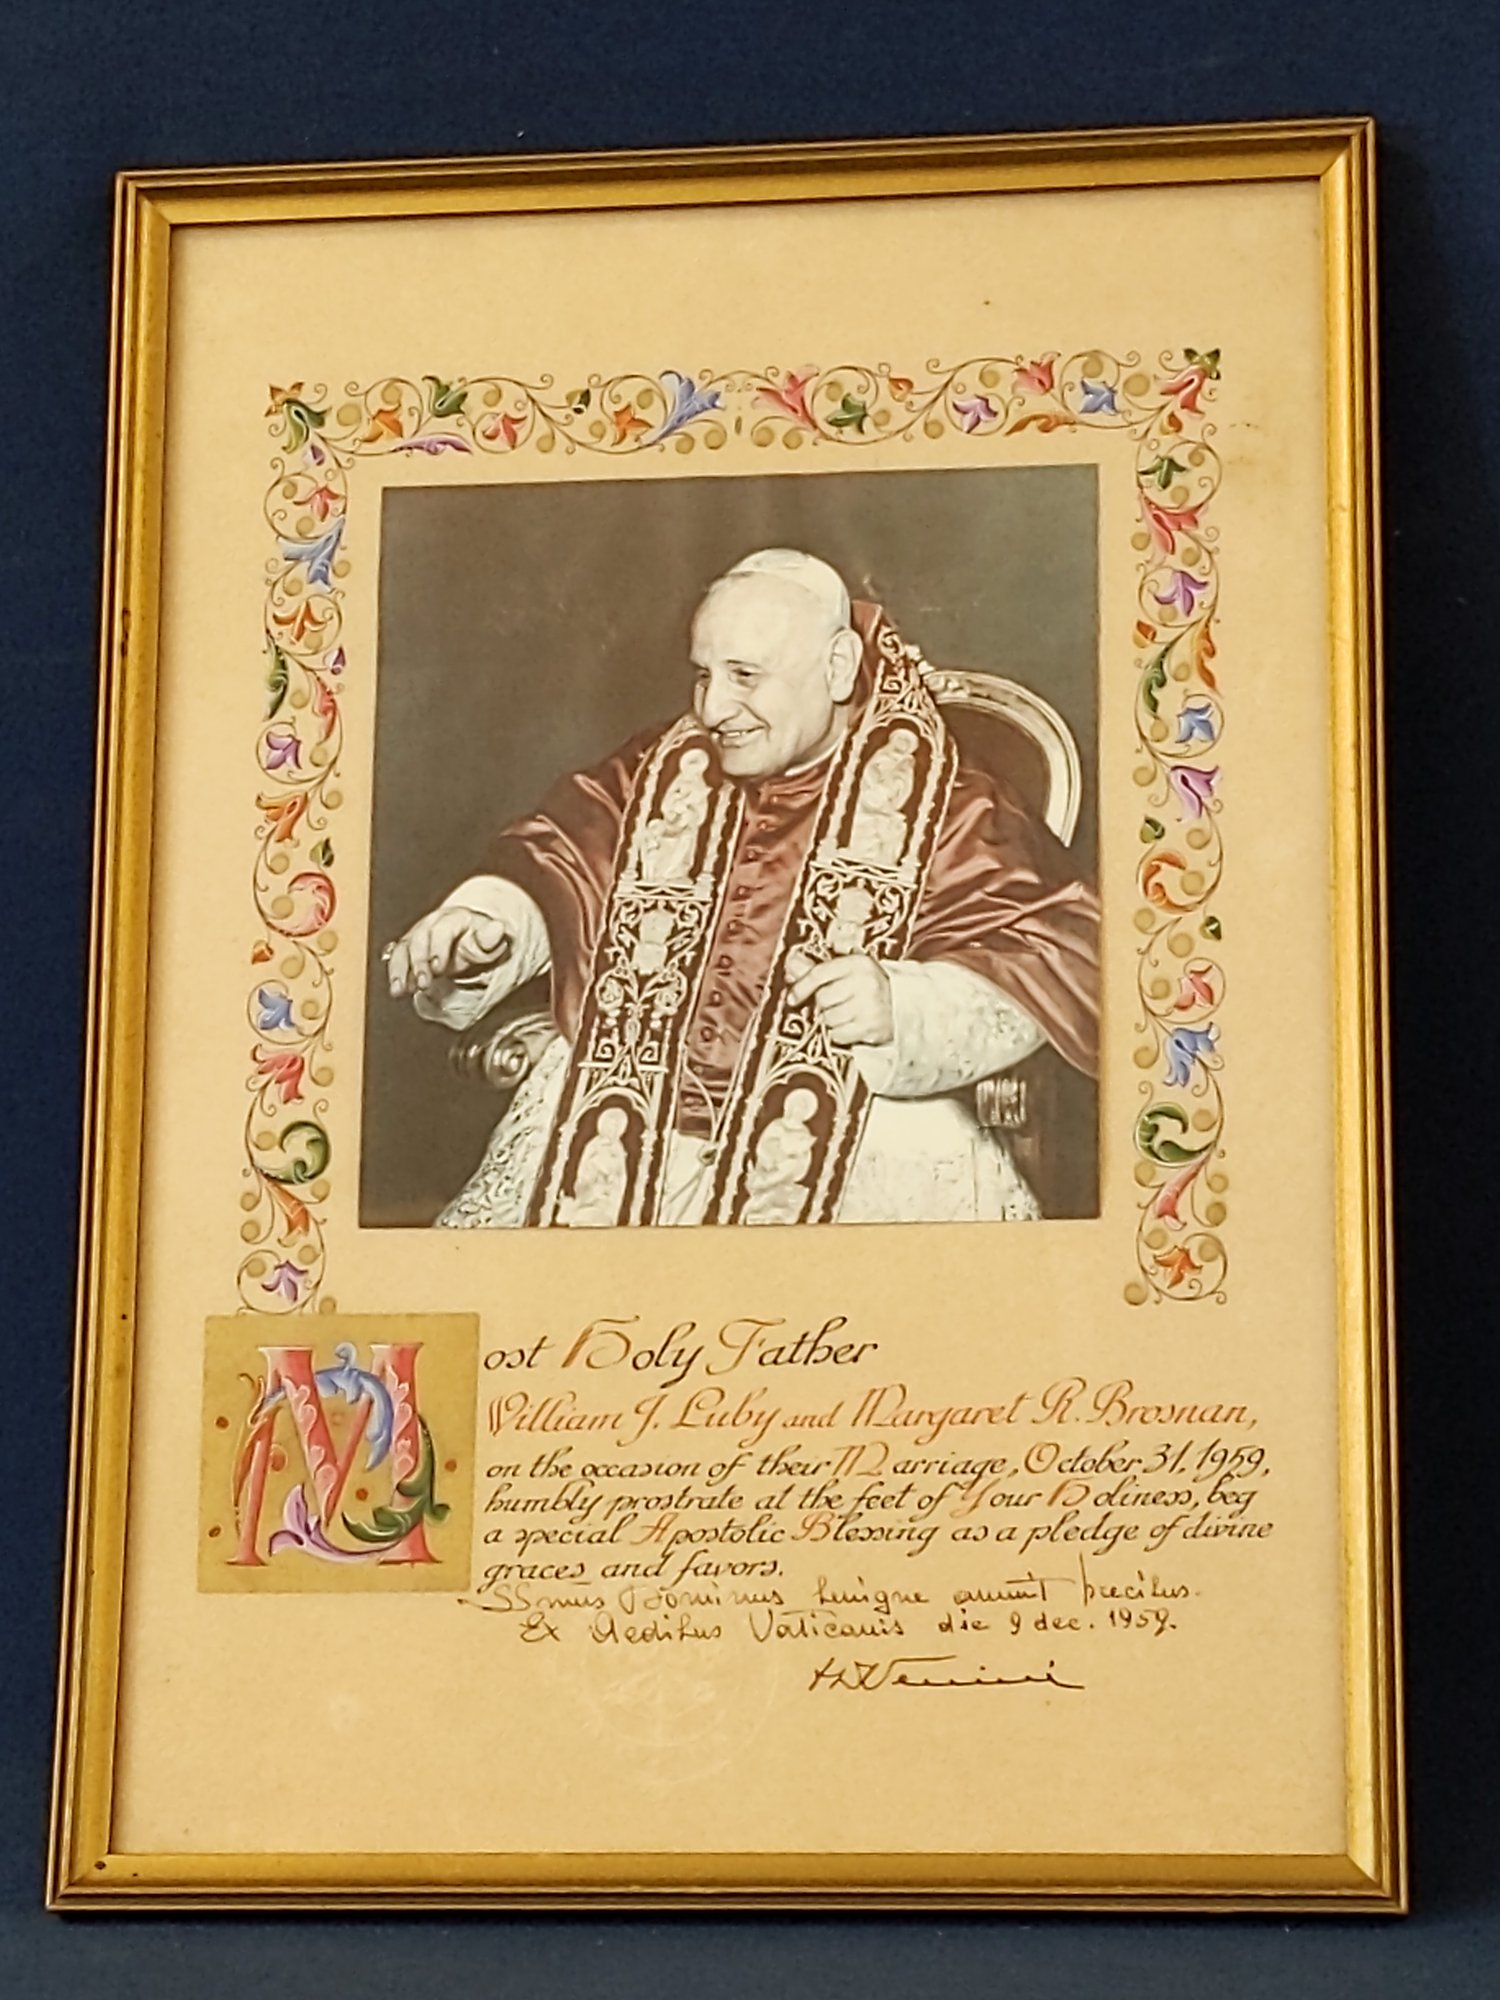 Most Holy Father
William J. Luby and Margaret R. Brosnan,
on the occasion of their Marriage, October 31, 1959,
humbly prostrate at the feet of Your Holiness, beg
a special Apostolic Blessing as a pledge of divine
graces and favors.
SSmus Dominus benigne annuit precibus.
Ex Aedibus Vaticanis die 9 dec. 1959.